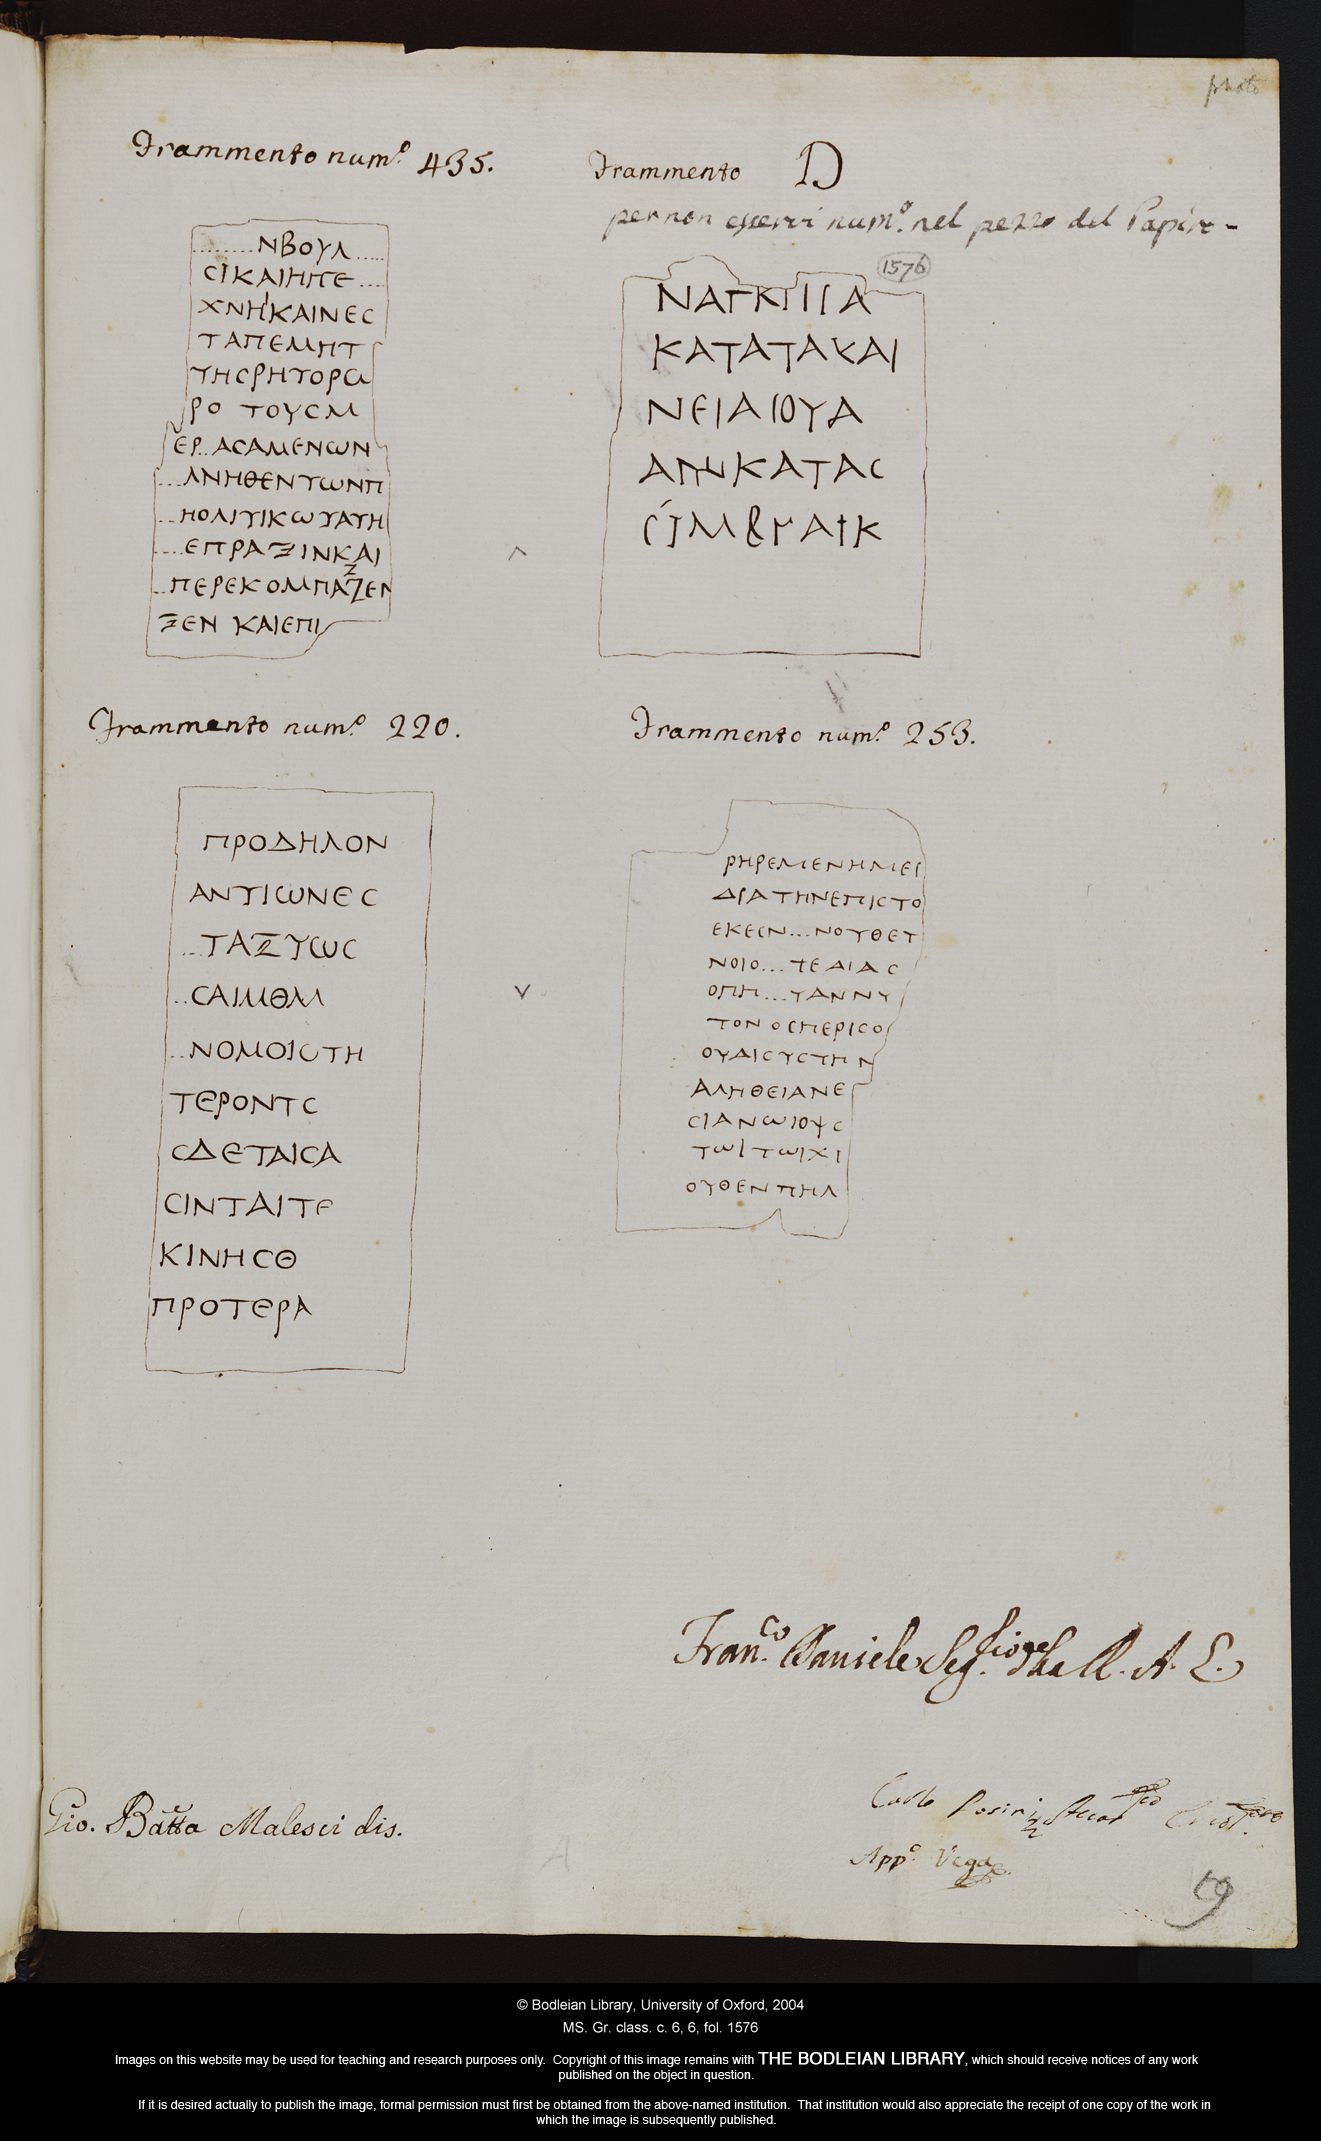 photo
Frammento num.º 435.
........ΝΒΟΥΛ.....
СΙΚΑΙΗΠΕ....
ΧΝΗΚΑΙΝΕС
ΤΑΠΕΜΗΤ
ΤΗСΡΗΤΟΡΩ
ΡΟ ΤΟΥСΜ
ΕΡ..ΑСΑΜΕΝΩΝ
...ΛΝΗΘΕΝΤΩΝΠ
...ΗΟΛΙΤΙΚΩΥΑΥΗ
....ΕΠΡΑΞΙΝΚΑΙ
Ζ
..ΠΕΡΕΚΟΜΠΑΖΕΝ
ΞΕΝ ΚΑΙΕΠΙ
Frammento D
per non esservi num.º nel pezzo del Papiro -
1576
ΝΑΓΚΠΙΓΑ
ΚΑΤΑΤΑ ΑΙ
ΝΕΙΑΙΟΥΑ
ΚΑΤΑС
Frammento num.º 220.
ΠΡΟΔΗΛΟΝ
ΑΝΤΙΩΝΕС
...ΤΑΞΥΩС
..СΑΙΜΘΜ
..ΝΟΜΟΙСΤΗ
ΤΕΡΟΝΤС
СΔΕΤΑΙСΑ
СΙΝΤΑΙΤΕ
ΚΙΝΗСΘ
ΠΡΟΤΕΡΑ
Frammento num.º 253.
ΡΗΡΕΜΕΝΗΜΕΙ
ΔΙΑΤΗΝΕΠΙСΤΟ
ΕΚΕСΝ...ΝΟΥΘΕΤ
ΝΟΙΟ...ΤΕΔΙΑС
ΟΠΗ...ΥΑΝΝΥ
ΤΟΝΟСΠΕΡΙСΟ
ΟΥΔΙСΥСΤΗΝ
ΑΛΗΘΕΙΑΝΕ
СΙΑΝΩΙΟΨС
ΤΩΙΤΩΙΧΙ
ΟΥΘΕΝΠΗΛ
Fran.co Daniele Seg.rio della R. A. E.
Gio. Batta Malesci dis.
Carlo Rosini
App.º Vega
© Bodleian Library, University of Oxford, 2004
MS. Gr. class. c. 6, 6, fol. 1576
Images on this website may be used for teaching and research purposes only. Copyright of this image remains with THE BODLEIAN LIBRARY, which should receive notices of any work
published on the object in question.
If it is desired actually to publish the image, formal permission must first be obtained from the above-named institution. That institution would also appreciate the receipt of one copy of the work in
which the image is subsequently published.